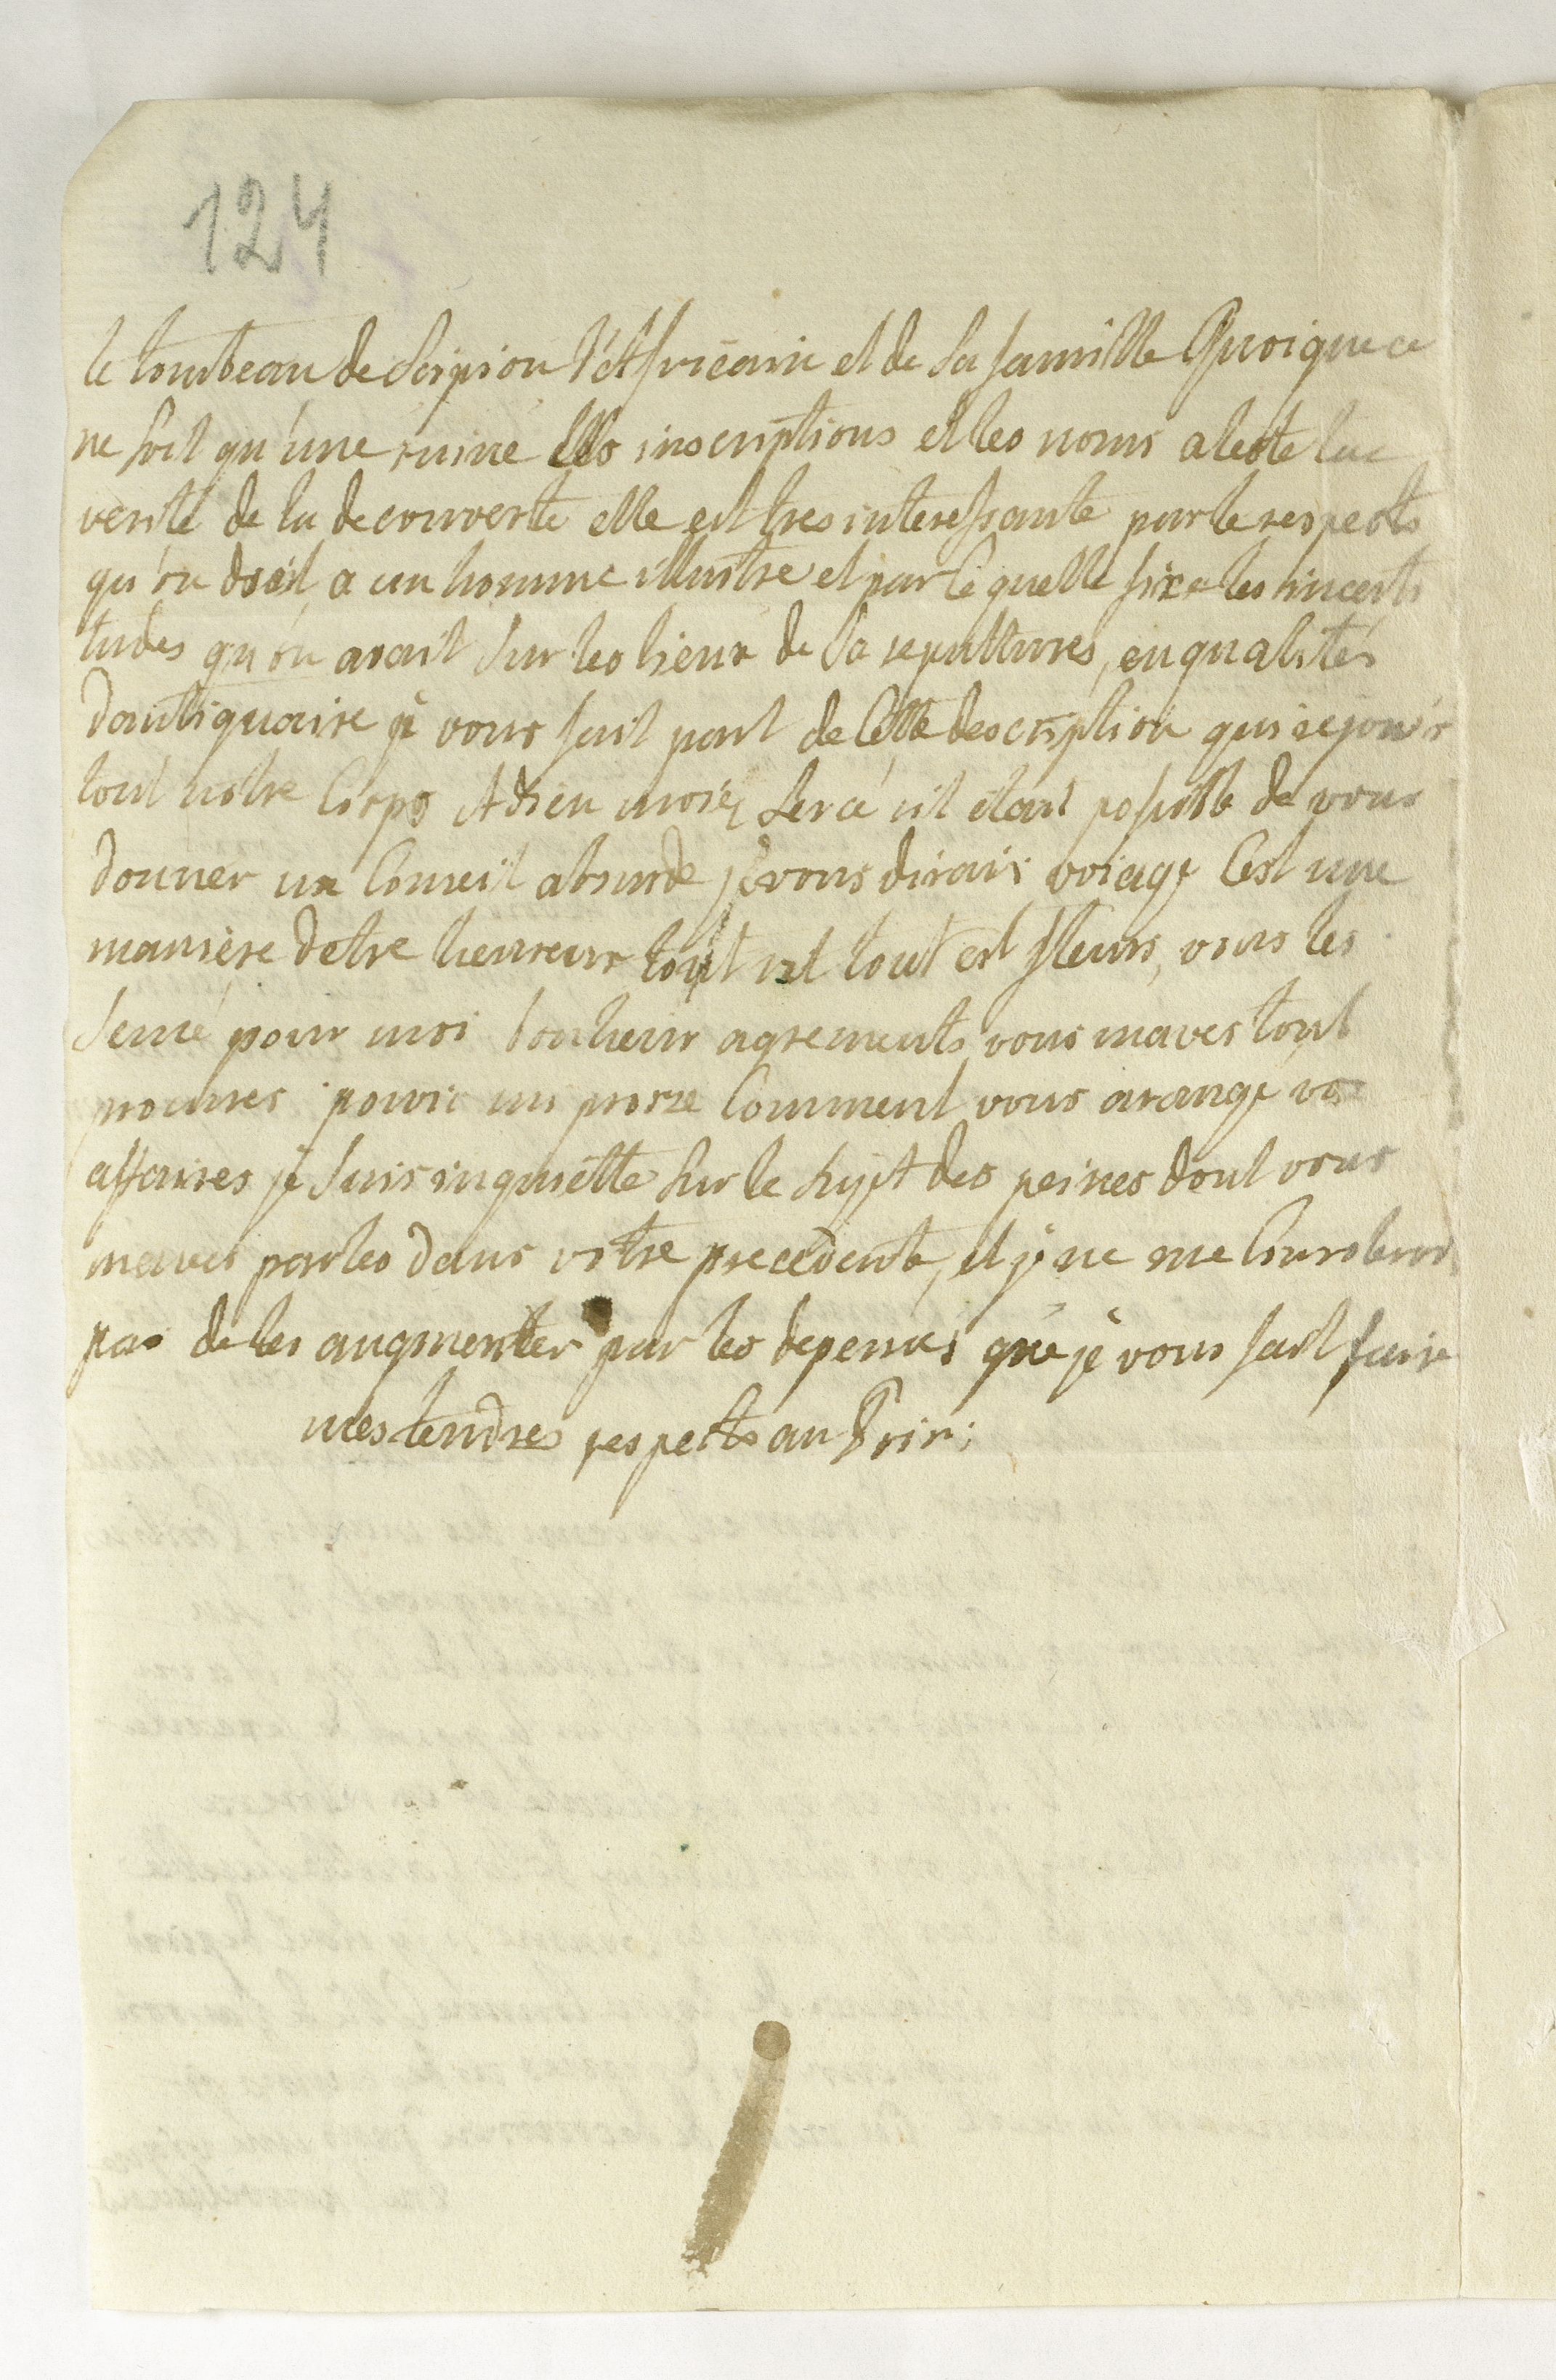 124
le tombeau de Scipion l'Affricain et de sa famille Quoique ce
ne soit qu'une ruine les inscriptions et les noms ateste la
verité de la decouverte elle est tres interessante par le respects
qu'on doit a un homme illustre et par ce quelle fixe les incerti
tudes qu'on avait sur les lieux de sa sepultures, en qualités
dantiquaire je vous fait part de cette description qui rejouis
tout notre Corps Adieu mon s'il etait possible de vous
donner un Conseil absurde je vous dirais voiage C'est une
maniere detre heureux tout est tout est fleurs, vous les
semé pour moi bonheur agrements vous maves tout
procures Comment vous arange vos
affaires je suis inquiette sur le sujet des peines dont vous
maves parles dans votre precedente, et je ne me Consolerais
pas de les augmenter par les depenses que je vous fait faire
mes tendres respects au Prin: